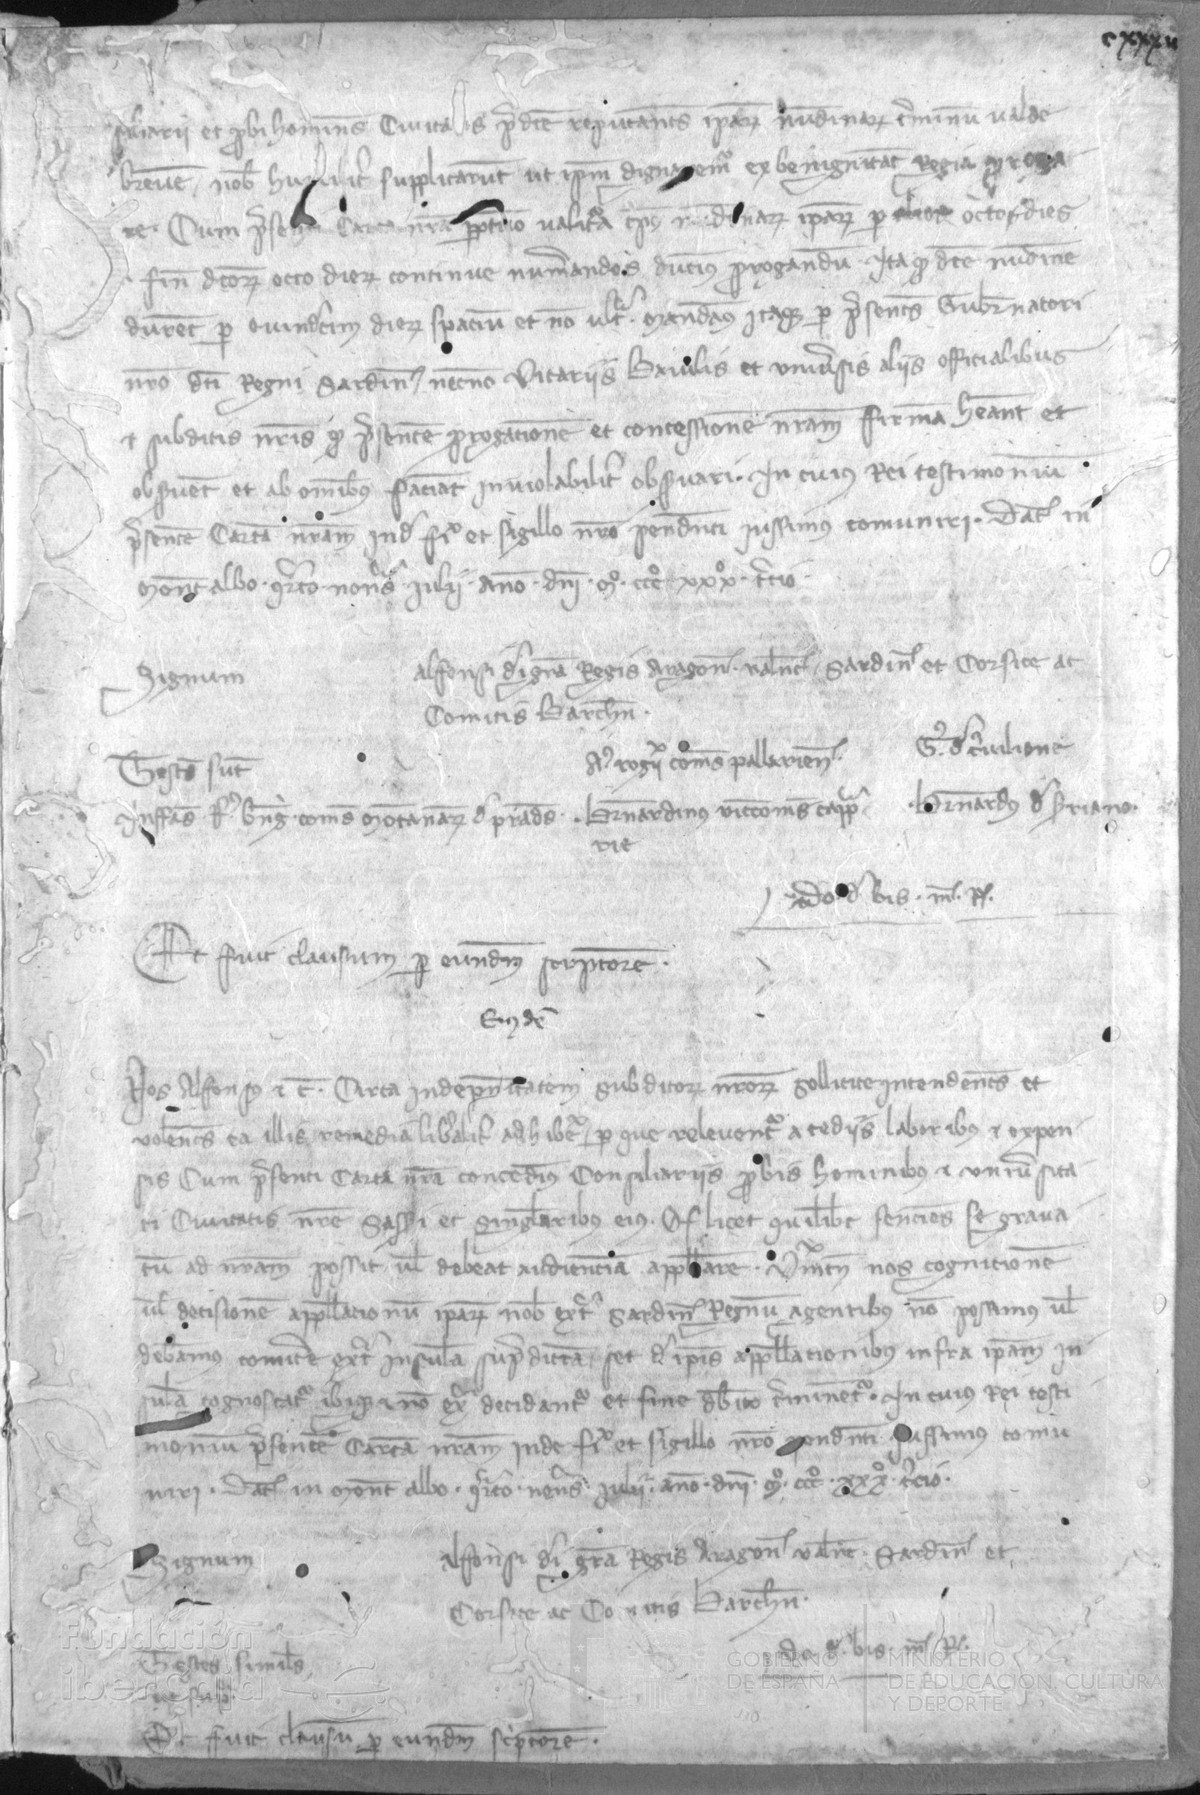 cxxxii
siliarii et ꝓbi homines Ciuitatis p̃dc̃e reputantes ip̃aꝝ nundinaꝝ t̃minũ ualde
breue, nob̃ humilit̃ supplicarũt ut ip̃m dignaremur ex benignitate Regia ꝓroga
re. Cum p̃senti Carta nr̃a ꝑpetuo ualitura tp̃us nundinaꝝ ip̃aꝝ ꝑ alios octo dies
fine dc̃oꝝ octo dieꝝ continue numerandos ducim̃ ꝓrogandum. Ita qd̃ dc̃e nundine
durent ꝑ dieꝝ spaciũ et nõ ult̃. Mandam̃ itaqꝫ ꝑ p̃sentes Gub̃natori
nr̃o dc̃i Regni Sardin̄ necnõ Vicariis Baiulis et uniũsis aliis officialibus
⁊ subditis nr̃is qd̃ p̃sentẽ ꝓrogationẽ et concessionẽ nr̃am firmã heãnt et
obseruent et ab omĩbus faciãt inuiolabilit̃ obseruari. In cuius Rei testimoniũ
p̃sentẽ Cartã nr̃am ind̃ fi᷒ et sigillo nr̃o pendenti iussimus comuniri. Dat̃ in
Monte albo. q̃rto. nonas. iulii. ano. dñi. Mº. cccº xxxº. t̃cio.
Signum
alfonsi dei gr̃a Regis Aragon̄. valenc̃, Sardin̄ et Corsice ac
Comitis Barch̄n.
Testes sũt
Infãs comes Montanaꝝ d̃ prades.
A. rogerii comes pallarien̄.
Bernardinus vicecomes cap̃
rie
G. d̃ ceruilione
Bernardus d̃
bis. m̃. R̃.
Et fuit clausum ꝑ eundm̃ scriptorẽ.
Nos Alfonsus ⁊ c̃. Circa indepnitatem subditoꝝ nr̃oꝝ sollicite intendentes et
uolentes ea illis remedia lib̃alit̃ adhibere ꝑ que releuentur a tediis laboribus ⁊ expen
sis Cum p̃senti Carta nr̃a concedim̃ Consiliariis ꝓbis hominibus ⁊ uniũsita
ti Ciuitatis nr̃e Sass̃i et Singularibus eius. Qd̃ licet quilib̃t sencies se graua
tũ ad nr̃am possit ul̃ debeat audienciã appellare. Verumtn̄ nos cognitionẽ
ul̃ decisionẽ appellacionũ ip̃aꝝ nob̃ ext̃ Sardin̄ Regnũ agentibus nõ possimus ul̃
debeamus comittẽ ext̃ insulã sup̃dictã, set d̃ ip̃is appellacionibus infra ip̃am in
sulã cognoscat̃ ibiqꝫ ⁊ nõ ext̃ decidantur et fine debito t̃minent̃. In cuius Rei testi
moniũ p̃sentẽ Cartã nr̃am inde fi᷒ et sigillo nr̃o pendenti iussimus comu
niri. Dat̃ in Monte albo. q̃rto. nonas. iulii. ano. dñi. Mº. cccº. xxxº. t̃cio.
Signum
alfonsi dei gr̃a Regis Aragon̄ valenc̃. Sardin̄ et
Corsice ac Comitis Barch̄n.
Testes similes
bis. m̃. R̃.
Et fuit clausũ ꝑ eundm̃ sc̃ptorẽ.
Fundación
Iberdrola
GOBIERNO
DE ESPAÑA
MINISTERIO
DE EDUCACIÓN, CULTURA
Y DEPORTE